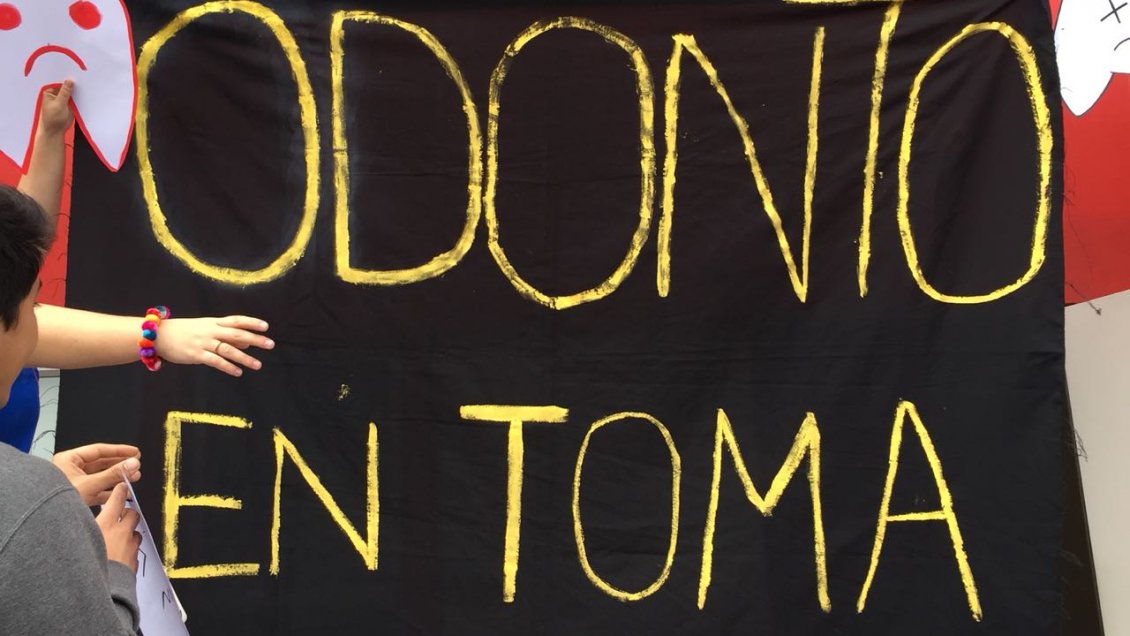 ODONTO
EN TOMA